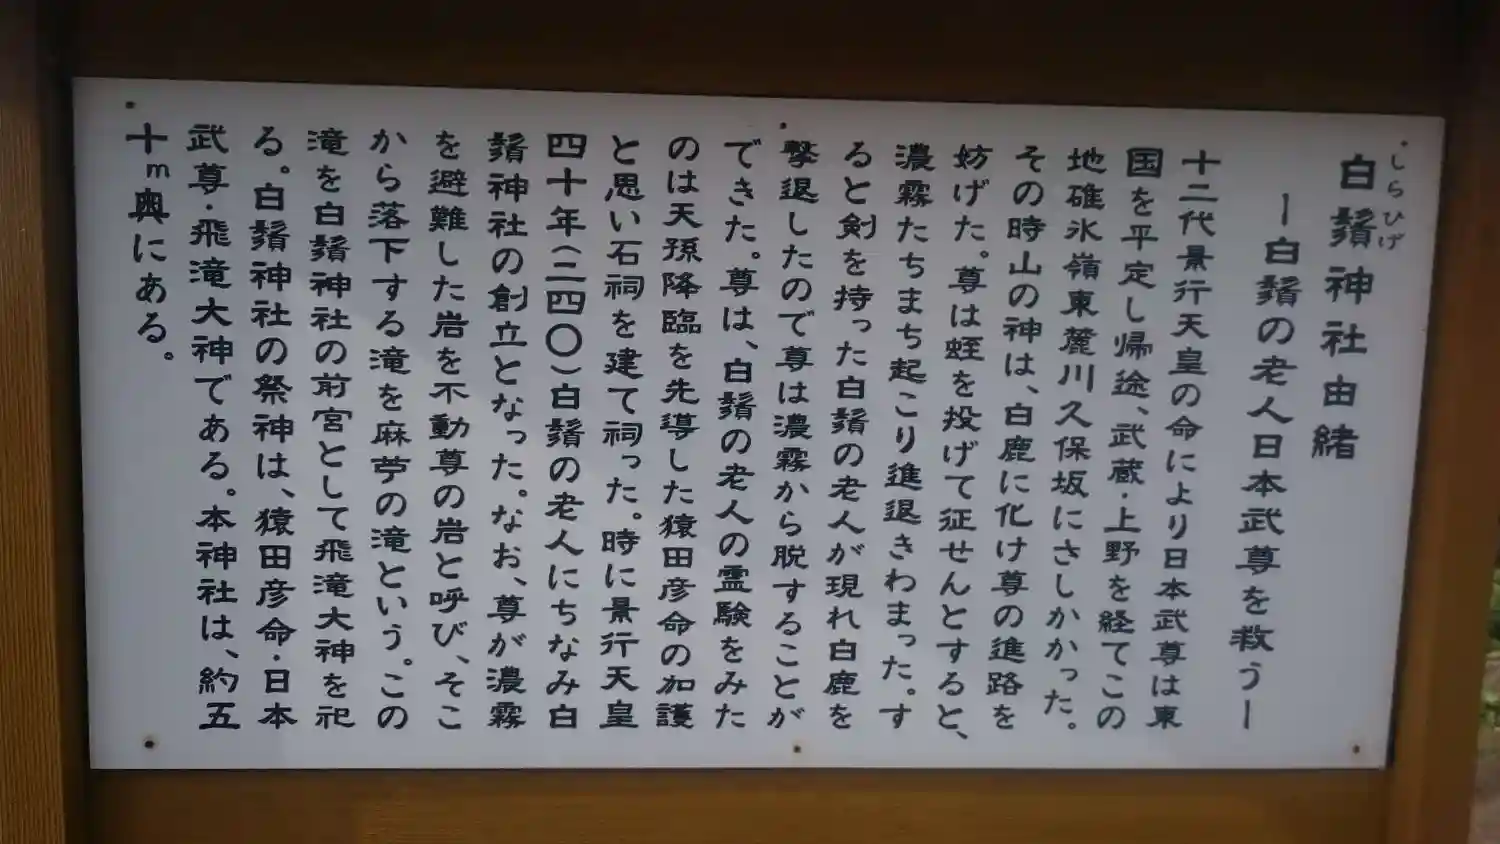 しらひげ
白鬚神社由緒
ー白鬚の老人日本武尊を救うー
十二代景行天皇の命により日本武尊は東
国を平定し帰途、武蔵・上野を経てこの
地碓氷嶺東麓川久保坂にさしかかった。
その時山の神は、白鹿に化け尊の進路を
妨げた。尊は蛭を投げて征せんとすると、
濃霧たちまち起こり進退きわまった。す
ると剣を持った白鬚の老人が現れ白鹿を
撃退したので尊は濃霧から脱することが
できた。尊は、白鬚の老人の霊験をみた
のは天孫降臨を先導した猿田彦命の加護
と思い石祠を建て祠った。時に景行天皇
四十年(二四〇)白鬚の老人にちなみ白
鬚神社の創立となった。なお、尊が濃霧
を避難した岩を不動尊の岩と呼び、そこ
から落下する滝を麻苧の滝という。この
滝を白鬚神社の前宮として飛滝大神を祀
る。白鬚神社の祭神は、猿田彦命・日本
武尊・飛滝大神である。本神社は、約五
十m奥にある。